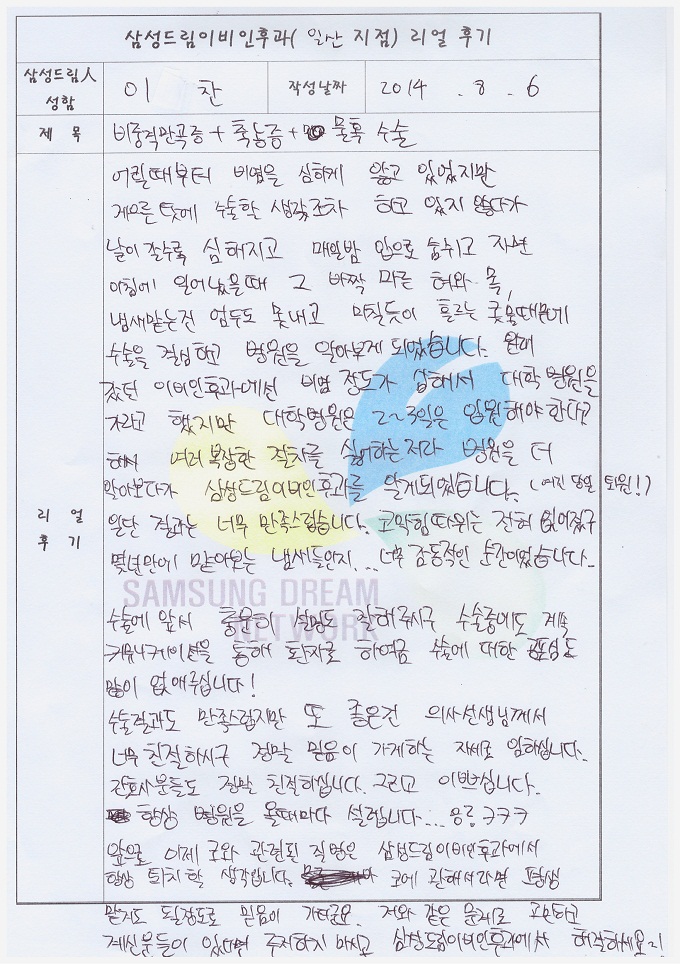 삼성드림이비인후과( 일산 지점) 리얼 후기
삼성드림人 성함
이 찬
작성날짜
2014 . 8 . 6
제 목
비중격만곡증 + 축농증 + 물혹 수술
리 얼 후 기
어릴때부터 비염을 심하게 앓고 있었지만
게으른 탓에 수술할 생각조차 하고 있지 않다가
날이 갈수록 심해지고 매일밤 입으로 숨쉬고 자면
아침에 일어났을때 그 바짝 마른 혀와 목,
냄새맡는건 엄두도 못내고 미칠듯이 흐르는 콧물때문에
수술을 결심하고 병원을 알아보게 되었습니다. 원래
갔던 이비인후과에선 비염 정도가 심해서 대학병원을
가라고 했지만 대학병원은 2~3일은 입원해야 한다고
해서 여러 복잡한 절차를 싫어하는 저라 병원을 더
알아보다가 삼성드림이비인후과를 알게되었습니다. (여긴 당일 퇴원!)
일단 결과는 너무 만족스럽습니다. 코막힘따위는 전혀 없어졌구
몇년만에 맡아보는 냄새들인지...너무 감동적인 순간이었습니다..
SAMSUNG DREAM
NETWORK
수술에 앞서 충분히 설명도 잘해주시구 수술중에도 계속
커뮤니케이션을 통해 환자로 하여금 수술에 대한 공포심도
많이 없애주십니다!
수술결과도 만족스럽지만 또 좋은건 의사선생님께서
너무 친절하시구 정말 믿음이 가게하는 자세로 임하십니다.
간호사분들도 정말 친절하십니다. 그리고 이쁘십니다.
항상 병원을 올때마다 설렙니다... 응?ㅋㅋㅋ
앞으로 이제 코와 관련된 질병은 삼성드림이비인후과에서
항상 퇴치할 생각입니다. 코에 관해서라면 평생
맡겨도 될정도로 믿음이 가더군요. 저와 같은 문제로 고민하고
계신분들이 있다면 주저하지 마시고 삼성드림이비인후과에서 해결하세요!